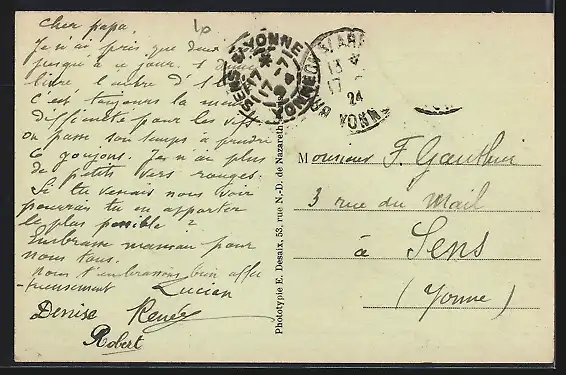 Cher papa,
Je n'ai pris que deux
jusqu'à ce jour. 1 d'une
livre l'autre d'1
C'est toujours la même
difficulté pour les vifs
on passe son temps à prendre
6 goujons. Je n'ai plus
de petits vers rouges.
Si tu venais nous voir
pourrais tu en apporter
le plus possible ?
Embrasse maman pour
nous tous.
Nous t'embrassons bien affec
-tueusement Lucien
Denise Renée
Robert
SENS YONNE
17-7
YONNE
24
Phototypie E. Desaix, 53, rue N.-D. de Nazareth
Monsieur F. Gauthier
3 rue du Mail
à
Sens
(Yonne)